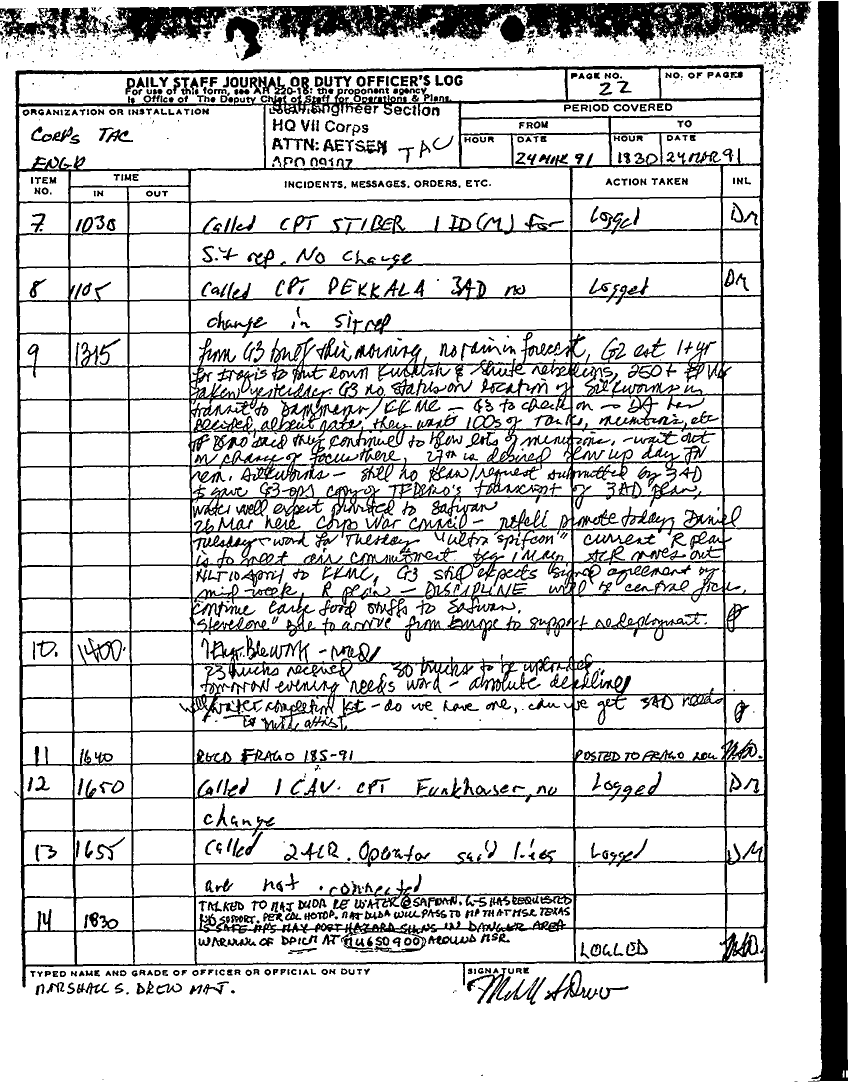 DAILY STAFF JOURNAL OR DUTY OFFICER'S LOG
For use of this form, see AR 220-15; the proponent agency
is Office of The Deputy Chief of Staff for Operations & Plans.
PAGE NO.
22
NO. OF PAGES
ORGANIZATION OR INSTALLATION
CORPS TAC
ENGR
Staff Engineer Section
HQ VII Corps
ATTN: AETSEN TAC
APO 09107
PERIOD COVERED
FROM TO
HOUR DATE HOUR DATE
24 MAR 91 1830 24 MAR 91
ITEM NO. TIME INCIDENTS, MESSAGES, ORDERS, ETC. ACTION TAKEN INL
IN OUT
7. 1030 Called CPT STIBER 1 ID(M) For Logged DM
Sit rep. No change
8 1105 Called CPT PEKKALA 3AD no Logged DM
change in sitrep
9 1315 from G3 of this morning, no rain in forecast, G2 est 1+ yr
for Iraqis to put down Kurdish & Shiite rebellions, 250+ EPWs
taken yesterday. G3 no status on location of Silkworms in
transit to /KKMC - G3 to check on - DA has
decided, they want 100s of tanks, munitions, etc
said they continued to blow lots of munitions, - wait out
on change of focus there, 27th is desired blow up day for
rem. Silkworms - still no plan/request submitted by 3AD
I gave G3-ops copy of transcript of 3AD plan,
water well expert provided to Safwan
26 Mar here Corp War Council - promote today, Daniel
Tuesday - word for Tuesday "ultra spifcon" current R plan
is to meet air commitment 1 May ACR moves out
NLT 10 April to KKMC, G3 still expects signed agreement by
mid-week, R plan - DISCIPLINE will be central focus,
continue food stuffs to Safwan.
"Stevedore" due to arrive from Europe to support redeployment.
10. 1400
23 trucks received 30 trucks to be uploaded
tomorrow evening needs word - absolute deadline
well/water completion kit - do we have one, can we get 3AD needs
assist.
11 1640 RECD FRAGO 185-91 POSTED TO FRAGO LOG MSD.
12 1650 Called 1 CAV. CPT Funkhouser, no Logged DM
change
13 1655 Called 2ACR. Operator said lines Logged DM
are not connected
14 1830 TALKED TO MAJ DUDA RE WATER @ SAFWAN. G-5 HAS REQUESTED
NO SUPPORT. PER COL HOTOP, MAJ DUDA WILL PASS TO MP THAT MSR TEXAS
IS SAFE MPS MAY POST HAZARD SIGNS IN DANGER AREA
WARNING OF DPICM AT (NU650900) AROUND MSR. LOGGED MSD.
TYPED NAME AND GRADE OF OFFICER OR OFFICIAL ON DUTY
MARSHALL S. DREW MAJ.
SIGNATURE